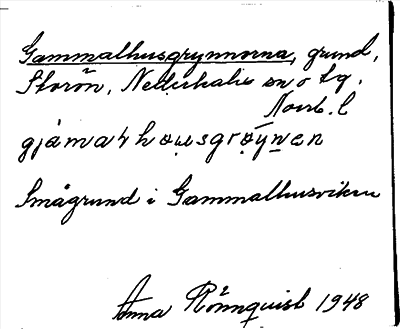 Gammalhusgrynnorna, grund,
Storön, Nederkalix sn o tg.
Norrb. l
gjámaɫhowsgrøýnen
Smågrund i Gammalhusviken
Anna Rönnquist 1948